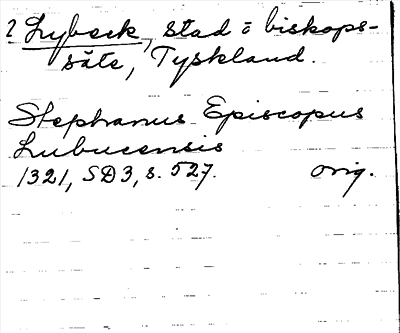 2 Lybeck, stad o biskops-
säte, Tyskland.
Stephanus Episcopus
Lubucensis
1321, SD3, s. 527. orig.